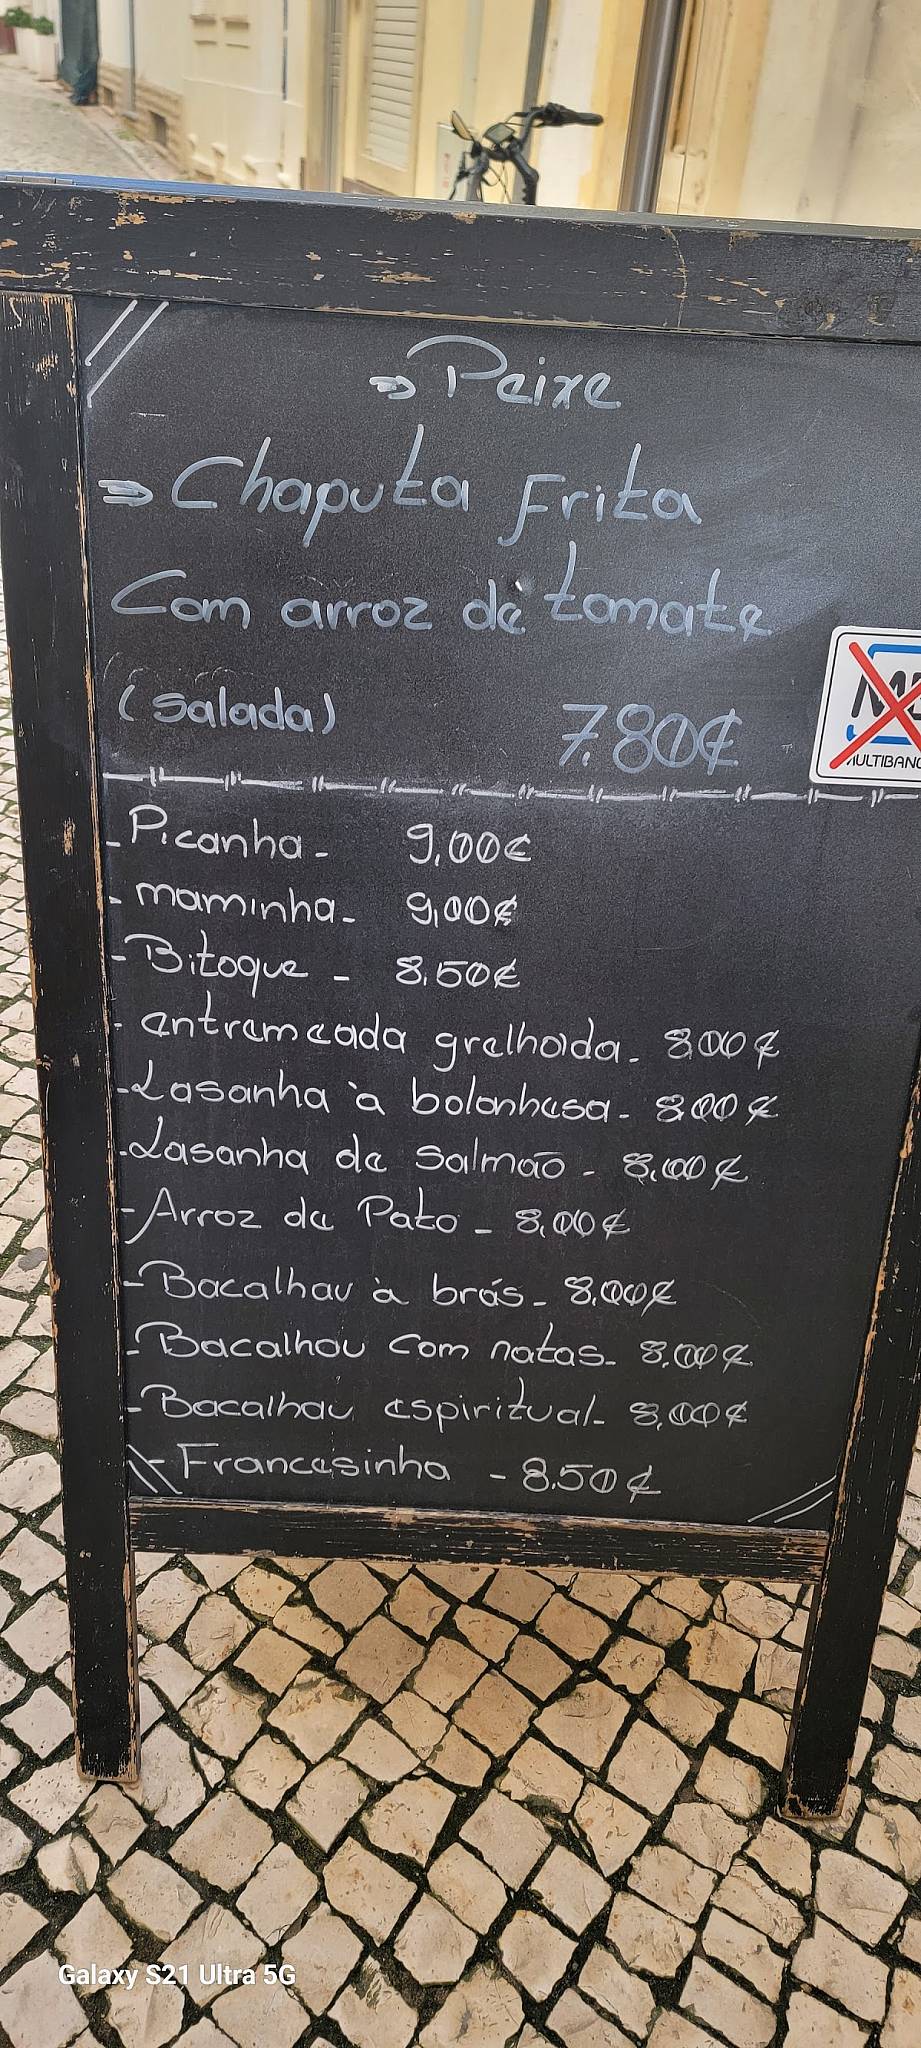 ⇒ Peixe
⇒ Chaputa Frita
Com arroz de tomate
(salada) 7.80€
MULTIBANC
- Picanha - 9,00€
- maminha - 9,00€
- Bitoque - 8,50€
- entremeada grelhada - 8,00€
- Lasanha à bolonhesa - 8,00€
- Lasanha de Salmão - 8,00€
- Arroz de Pato - 8,00€
- Bacalhau à brás - 8,00€
- Bacalhau com natas - 8,00€
- Bacalhau espiritual - 8,00€
- Francesinha - 8.50€
Galaxy S21 Ultra 5G